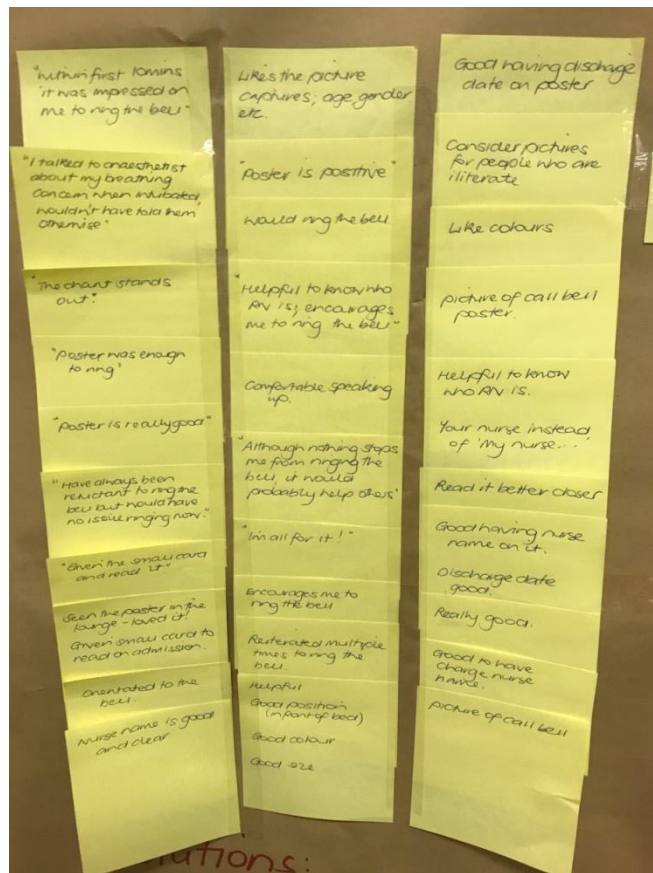 "Within first 10mins
it was impressed on
me to ring the bell"
"I talked to anaesthetist
about my breathing
concern when intubated,
wouldn't have told them
otherwise"
"The chart stands
out".
"Poster was enough
to ring"
"Poster is really good"
"Have always been
reluctant to ring the
bell but would have
no issue ringing now."
"Given the small card
and read it"
Seen the poster in the
lounge - loved it!
Given small card to
read on admission.
Orientated to the
bell.
Nurse name is good
and clear
Likes the picture
captures; age, gender
etc.
"Poster is positive"
Would ring the bell
"Helpful to know who
RN is; encourages
me to ring the bell"
Comfortable speaking
up.
"Although nothing stops
me from ringing the
bell, it would
probably help others"
"I'm all for it!"
Encourages me to
ring the bell
Reiterated multiple
times to ring the
bell.
Helpful
Good position
(in front of bed)
Good colour
Good size
Good having discharge
date on poster
Consider pictures
for people who are
iliterate
Like colours
picture of call bell
poster.
Helpful to know
who RN is.
Your nurse instead
of 'My nurse...'
Read it better closer
Good having nurse
name on it.
Discharge date
good.
Really good.
Good to have
charge nurse
name.
picture of call bell
utions: